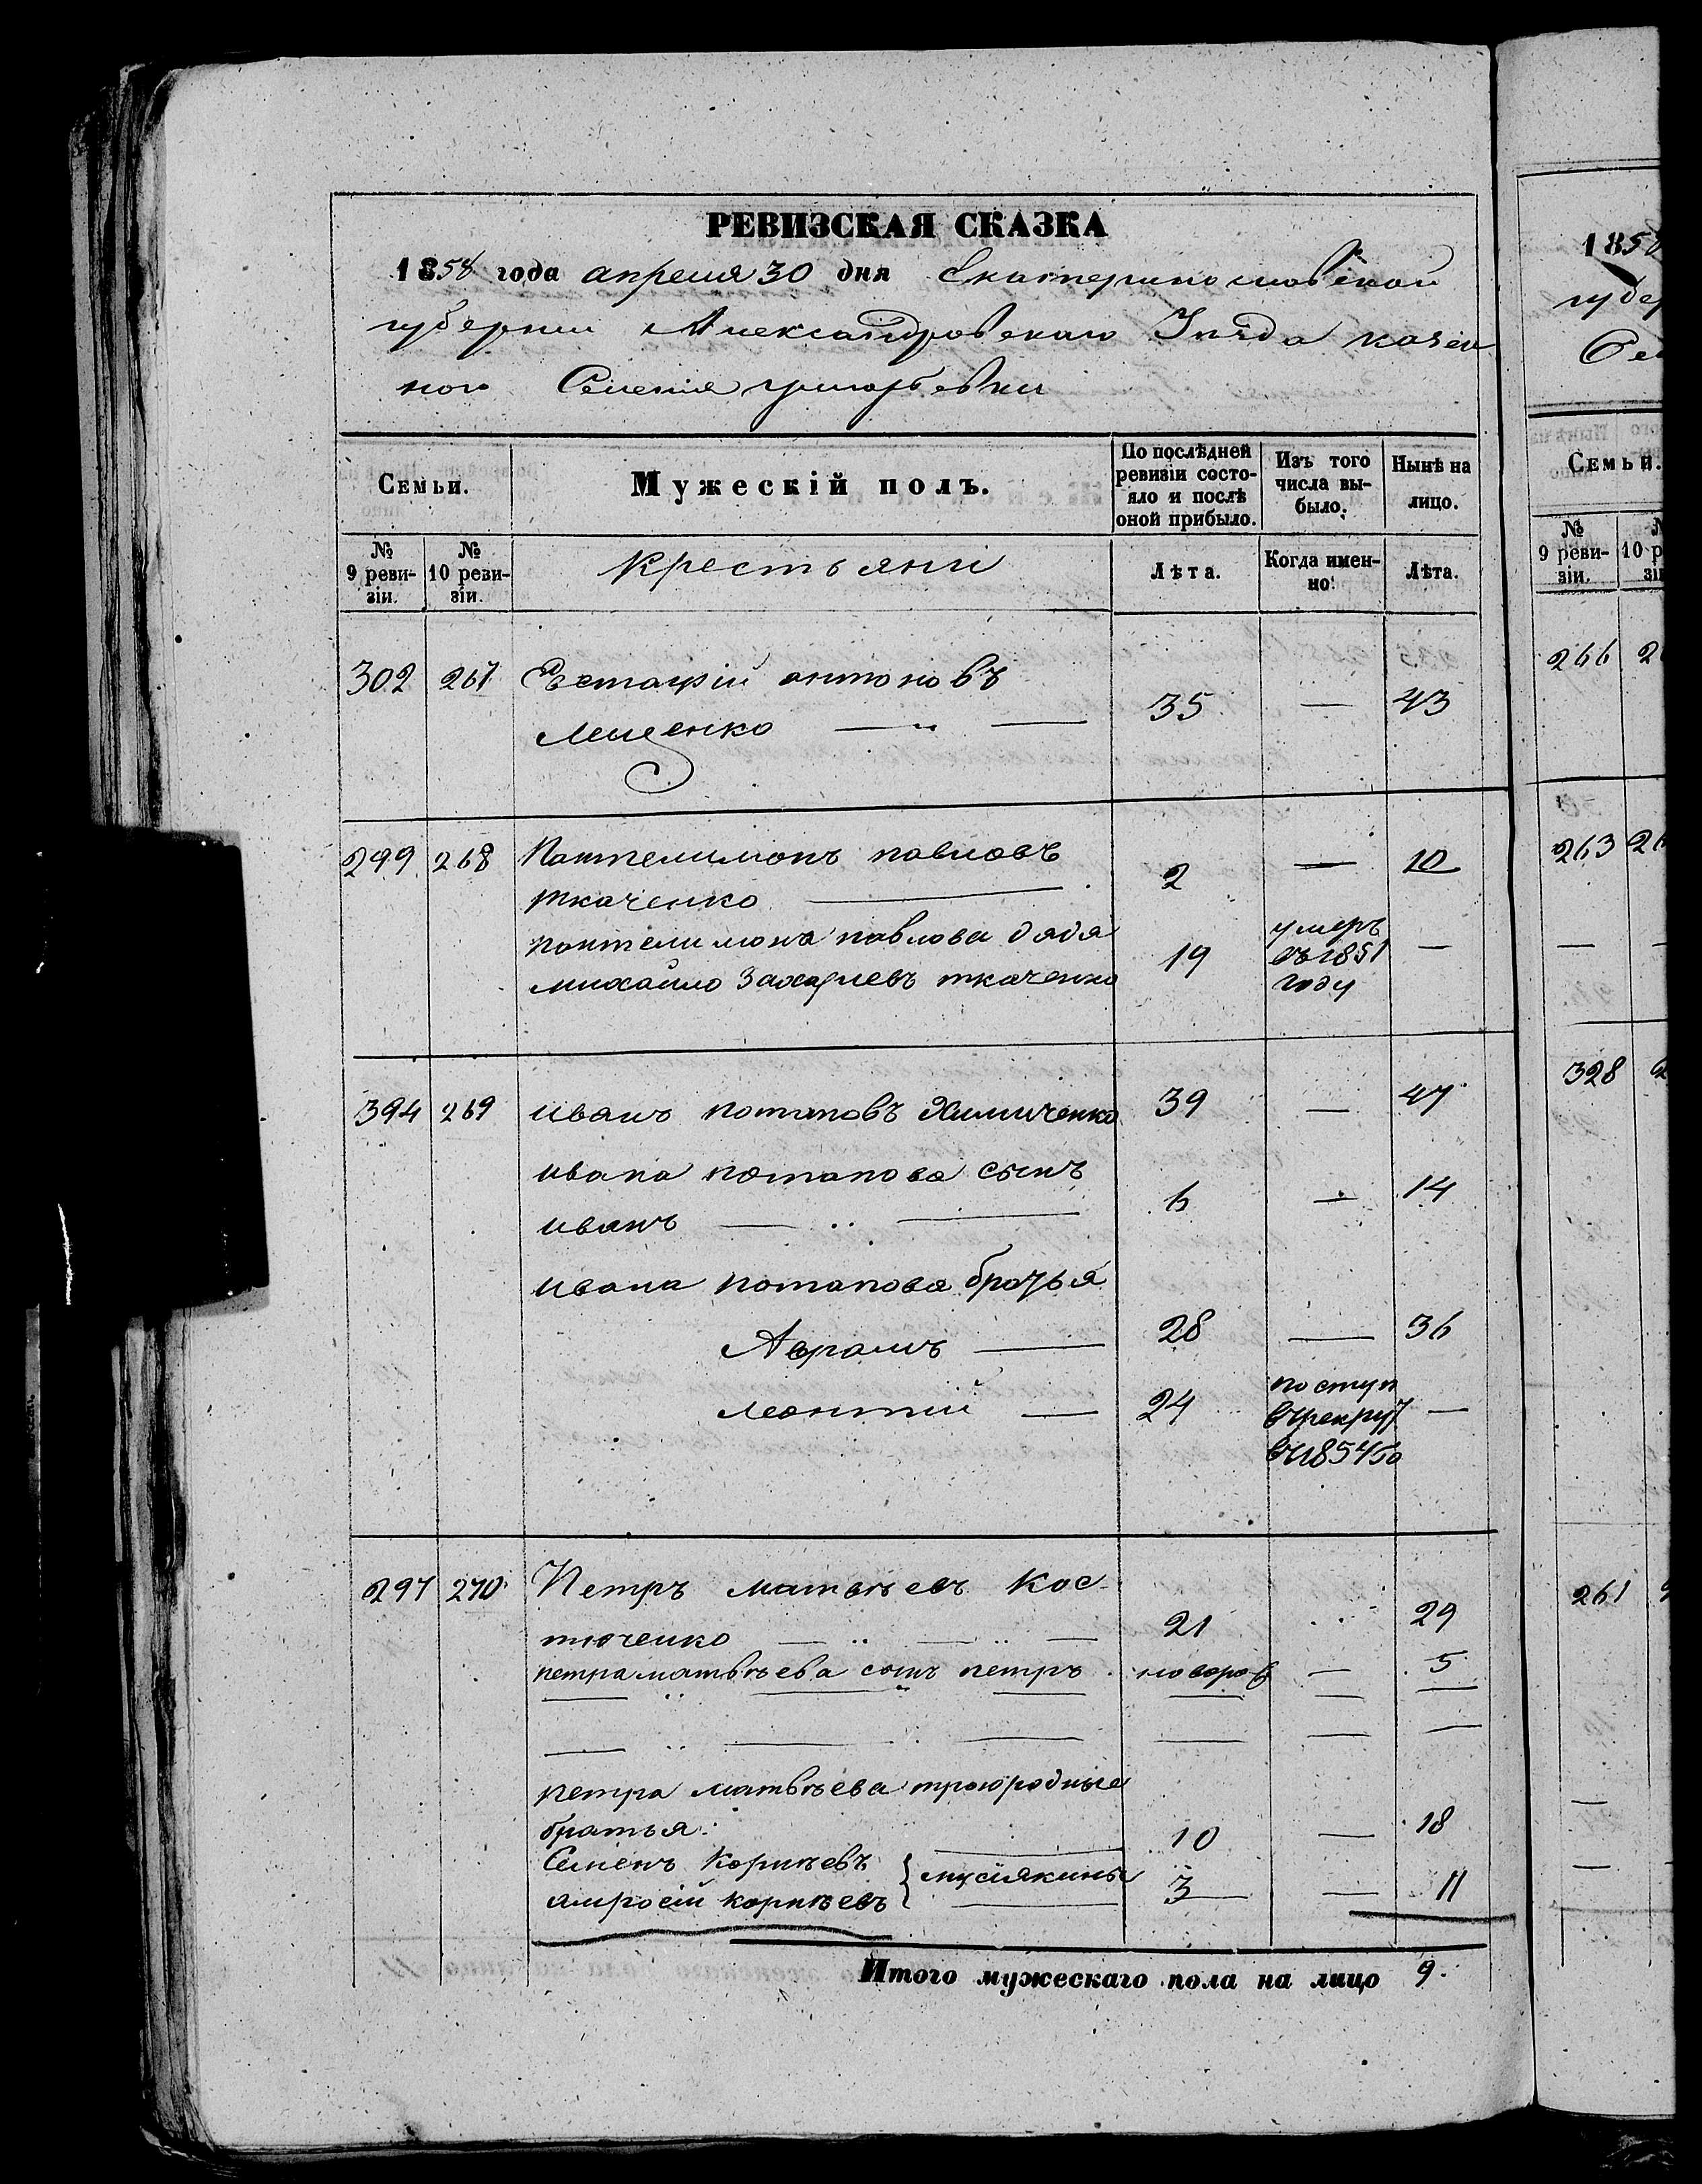 РЕВИЗСКАЯ СКАЗКА
1858 года апреля 30 дня Екатеринославской
губернии Александровскаго Уезда казен
ного Селения григорьевки
Семьи.
Мужескій полъ.
По послѣдней ревизіи состо-яло и послѣ оной прибыло.
Изъ того числа вы-было.
Нынѣ на лицо.
№ 9 реви-зіи.
№ 10 реви-зіи.
крестьяни
Лѣта.
Когда имен-но.
Лѣта.
302 267 Евстафій антоновъ
Мищенко 35 — 43
299 268 Пантелимонъ павловъ
ткаченко 2 — 10
пантелимона павлова дядя
михайло Захариевъ ткаченко 19 умеръ въ 1851 году —
394 269 иванъ потаповъ Химиченко 39 — 47
ивана потапова сынъ
иванъ 6 — 14
ивана потапова братья
Аврамъ — 28 — 36
леонтій — 24 поступ въ рекрут въ 1854 го —
297 270 Петръ матвѣевъ Кос
тюченко 21 29
петра матвѣева сынъ петръ новорож — 5
петра матвѣева троюродные
братья:
Семенъ Корнѣевъ 10 — 18
амросій корнѣевъ } мусіякины 3 — 11
Итого мужескаго пола на лицо 9.
1858
губер
Се
Семьи.
№ 9 реви-зіи.
10 р
266
263
328
261